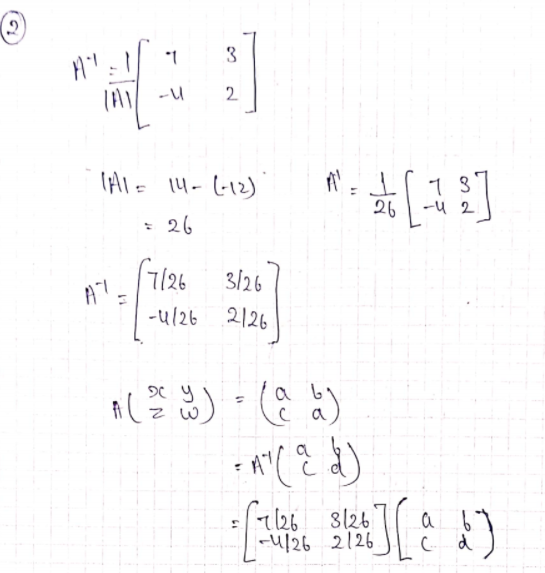 2
A⁻¹ = 1/|A| [ 7 3
-4 2 ]
|A| = 14 - (-12)
= 26
A¹ = 1/26 [ 7 3
-4 2 ]
A⁻¹ = [ 7/26 3/26
-4/26 2/26 ]
A ( x y
z w ) = ( a b
c a )
= A⁻¹ ( a b
c d )
= [ 7/26 3/26
-4/26 2/26 ] [ a b
c d )